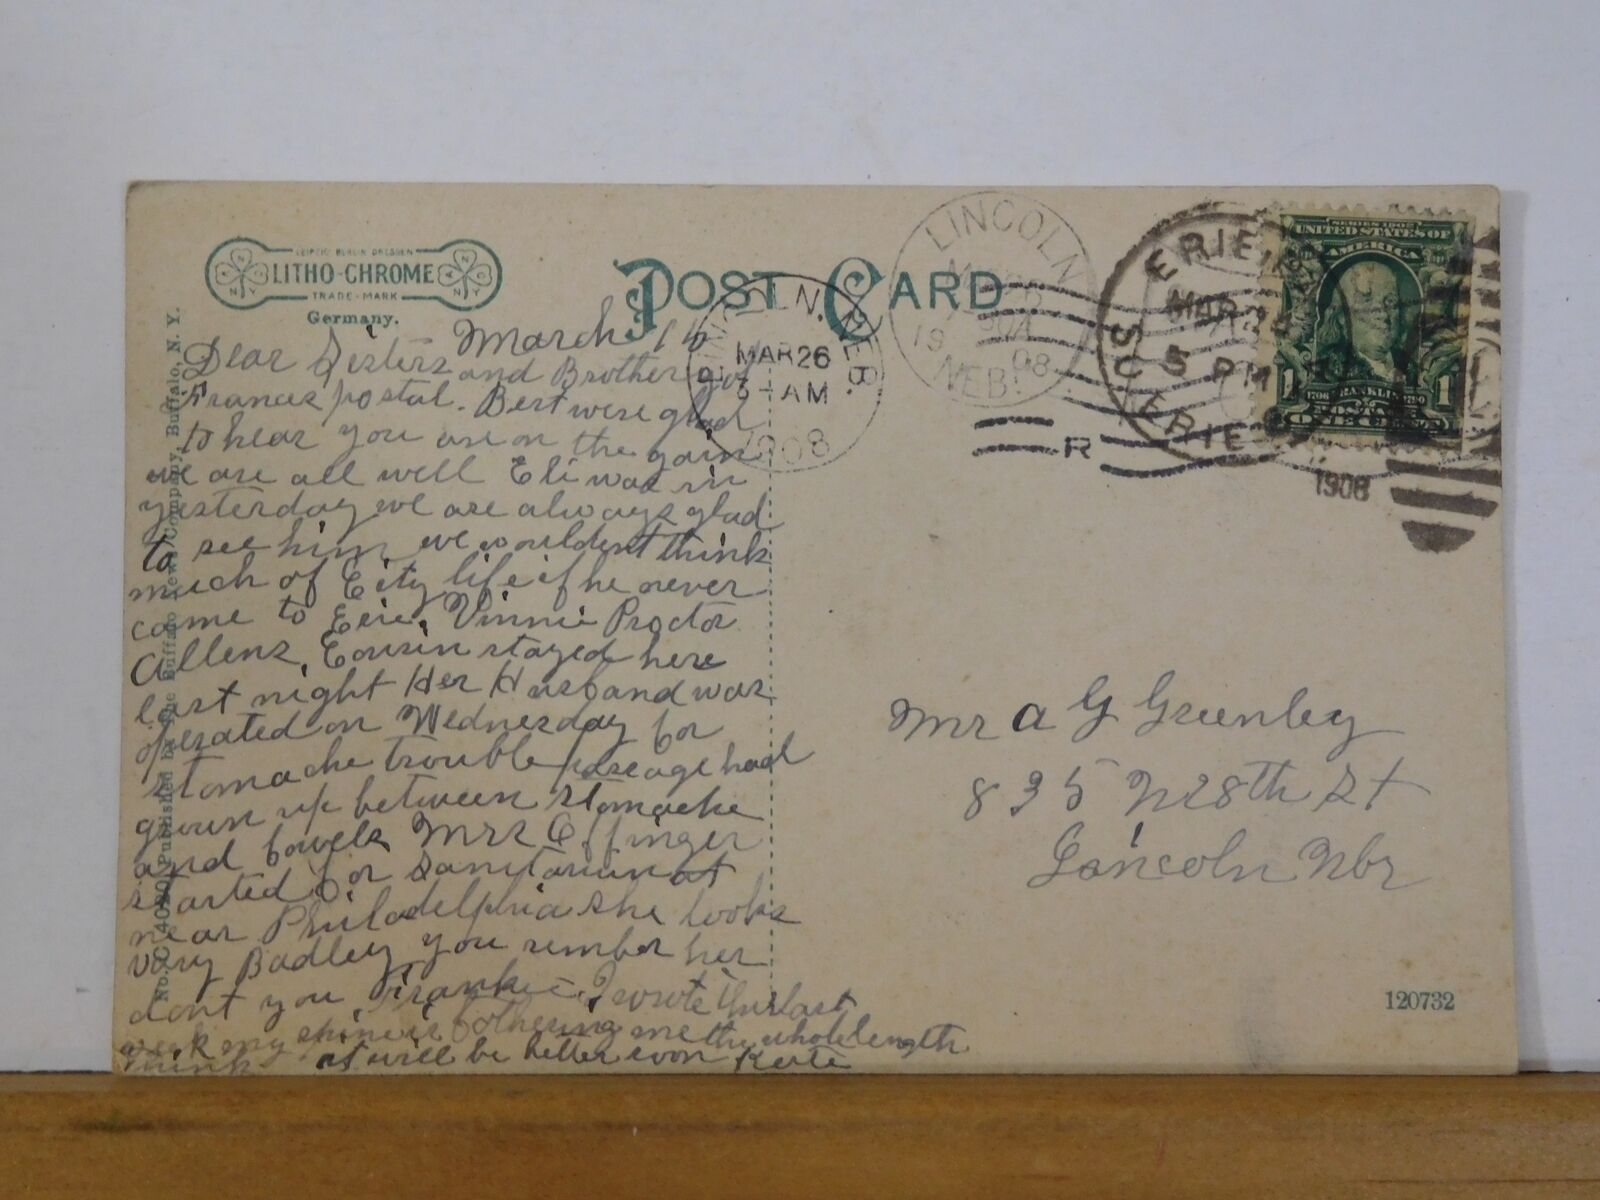 LEIPZIG BERLIN DRESDEN
LITHO-CHROME
TRADE-MARK
Germany.
POST CARD
March 16
Dear Sisters and Brother got
Frances postal. Bert were glad
to hear you are on the gain
we are all well Eli was in
yesterday we are always glad
to see him we wouldent think
much of City life if he never
came to Erie, Vinnie Proctor
Allens, Cousin stayed here
last night Her Husband was
operated on Wednesday for
stomache trouble pasage had
grown up between stomache
and bowels Mrs Effinger
started for Sanitarium at
near Philadelphia she looks
very Badley you rember her
dont you Frankie I wrote this last
week my spine is bothering me the whole length
think it will be better soon Kate
No. C 4020 Published by The Buffalo News Company, Buffalo, N. Y.
LINCOLN, NEBR.
MAR 26
3- AM
1908
LINCOLN
19 08
NEB.
R
ERIE
MAR 24
5 PM
ERIE
1908
SERIES 1902
UNITED STATES OF
AMERICA
1706 FRANKLIN 1790
POSTAGE
1 ONE CENT 1
Mr A G Greenley
835 N 28th St
Lincoln Nbr
120732